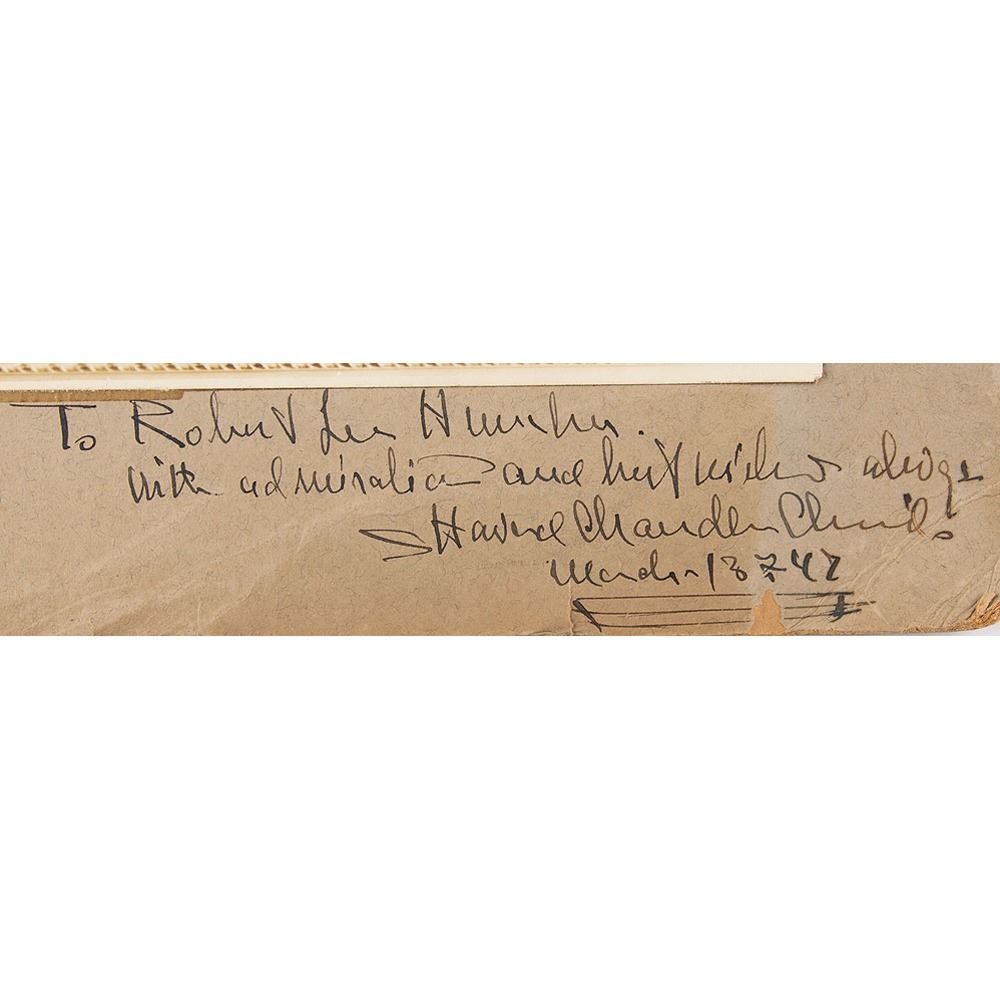 To Robert Lee Humber.
with admiration and best wishes always
Howard Chandler Christy
March 13 - 47